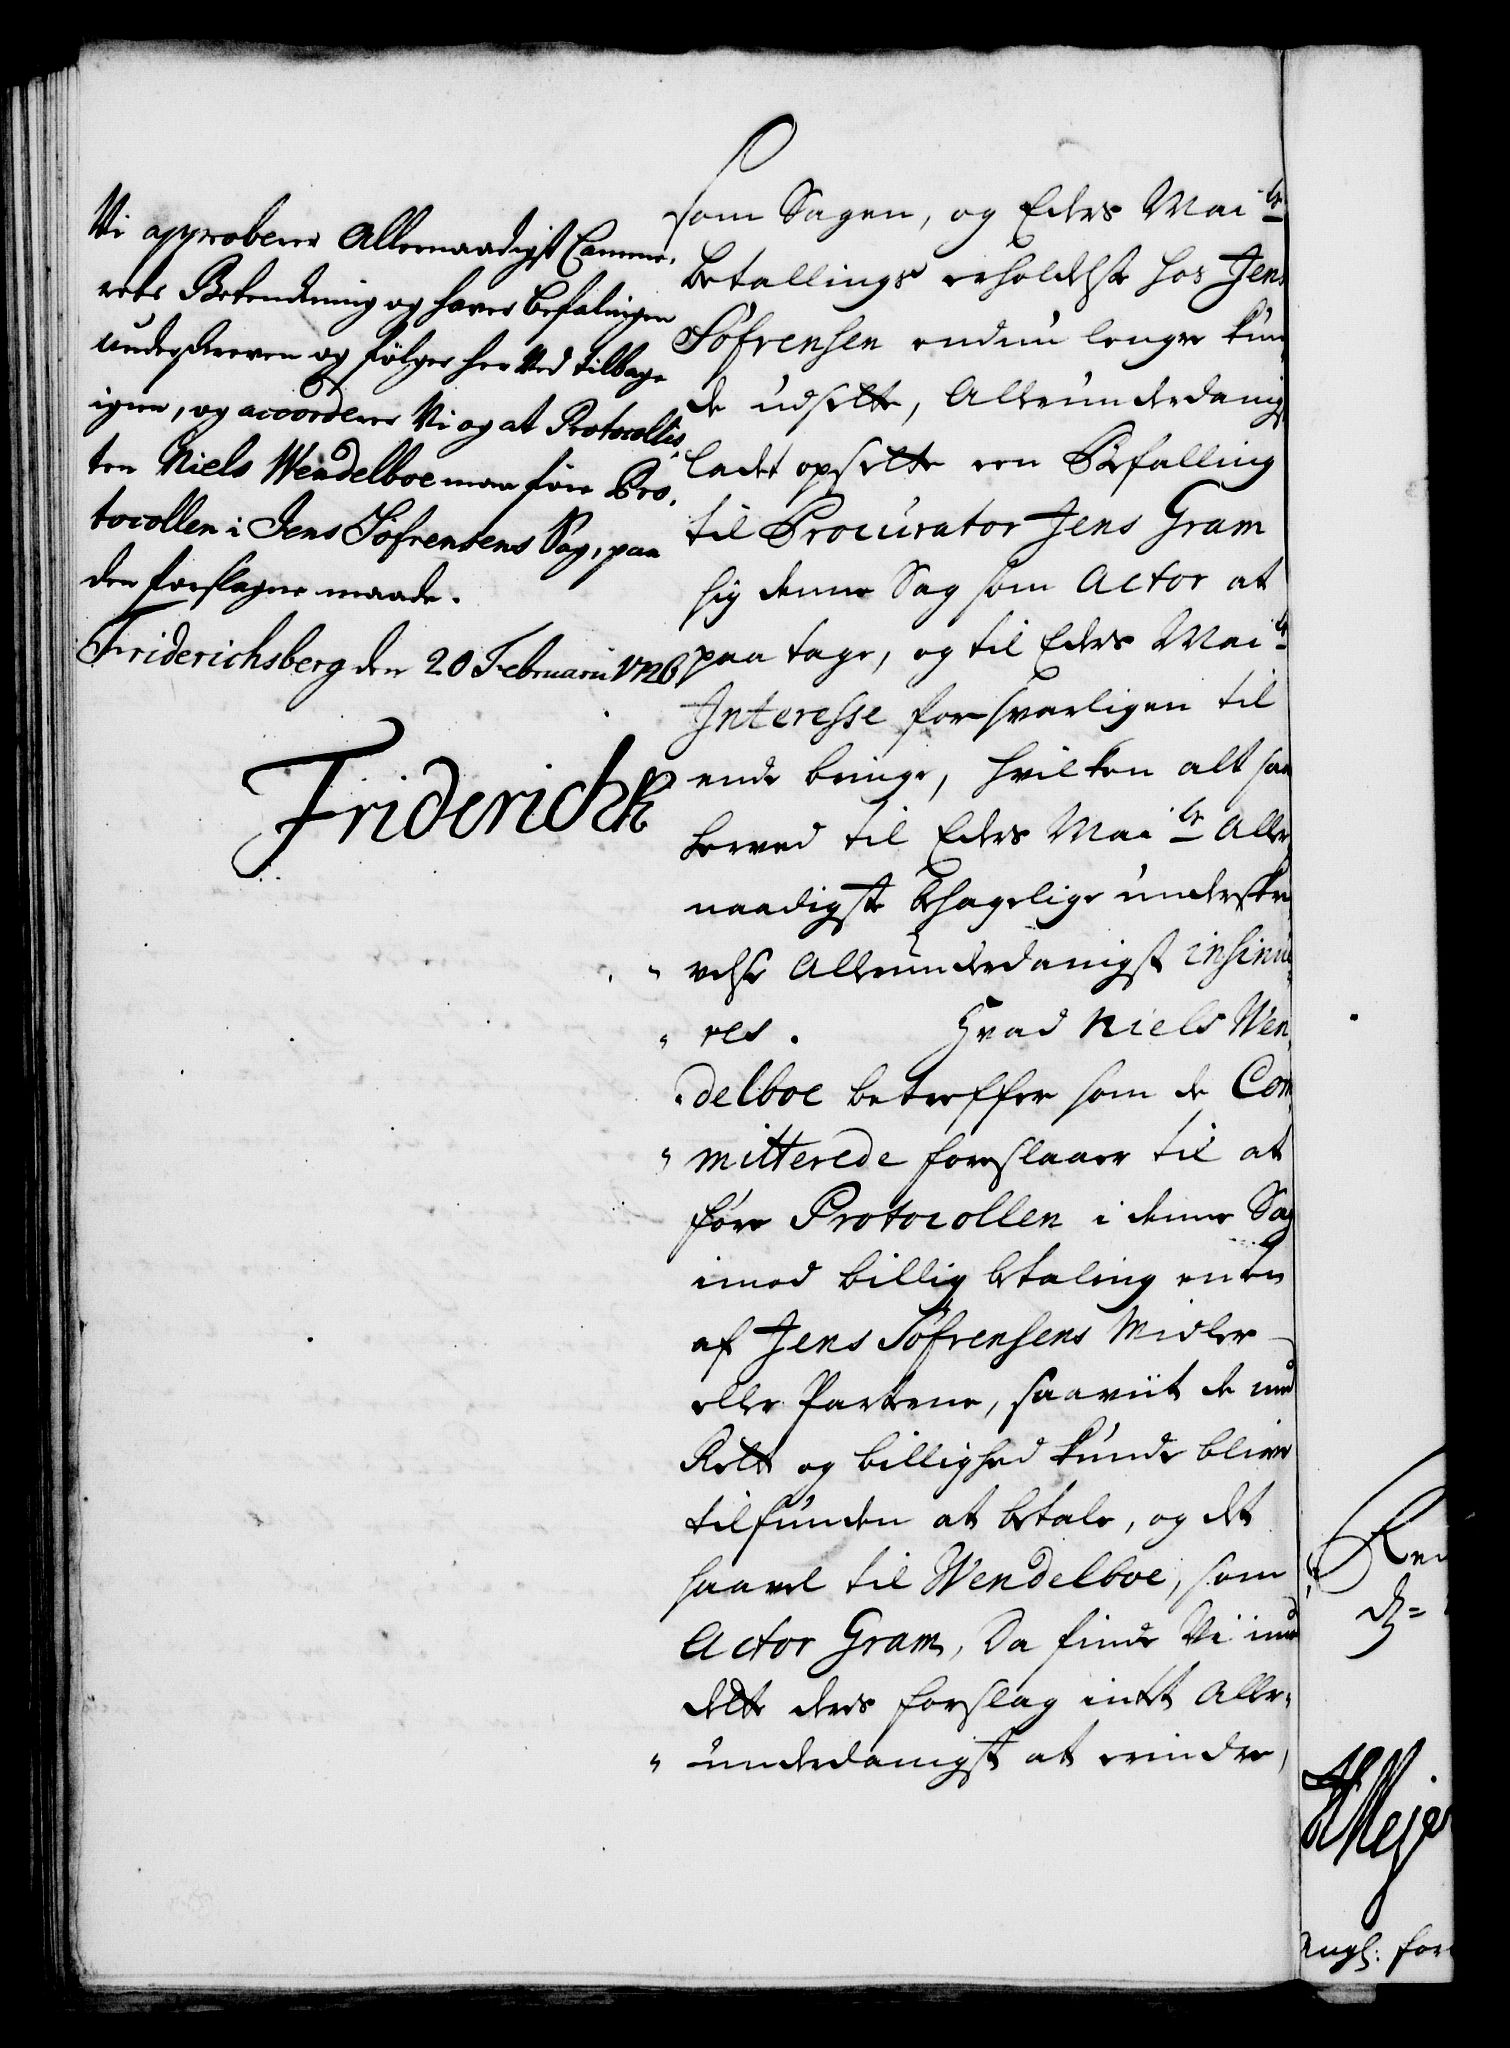 Vi approberer Allernaadigst Camme-
rets Betenckning og haver befalingen
underskreven og følger her ved tilbage
igien, og accorderer Vi og at Protocollis-
ten Niels Wendelboe maa føre Pro-
tocollen i Jens Söfrensens Sag, paa
den forslagne maade.
Friderichsberg den 20 Februarii 1726
Friderich R
som Sagen, og Eders Maits
betallings erholdelse hos Jens
Söfrensen endnu lenger kun-
de udsette, Allerunderdanigst
ladet opsette een Befalling
til Procurator Jens Gram
sig denne Sag som Actor at
paa tage, og til Eders Maits
Interesse forsvarligen til
ende bringe, hvilken alt saa
herved til Eders Maits Aller
naadigste behagelige underskri
velse Allerunderdanigst insinue-
res. Hvad Niels Wen-
delboe betreffer som de Com
mitterede foreslaaer til at
føre Protocollen i denne Sag
imod billig betaling enten
af Jens Söfrensens Midler
eller Parterne, saaviit de med
Rett og billighed kunde blive
tilfunden at betale, og det
saavel til Wendelboe, som
Actor Gram, Da finde Vi imod
dette deres forslag intet Aller-
underdanigst at erindre,
HMeyer